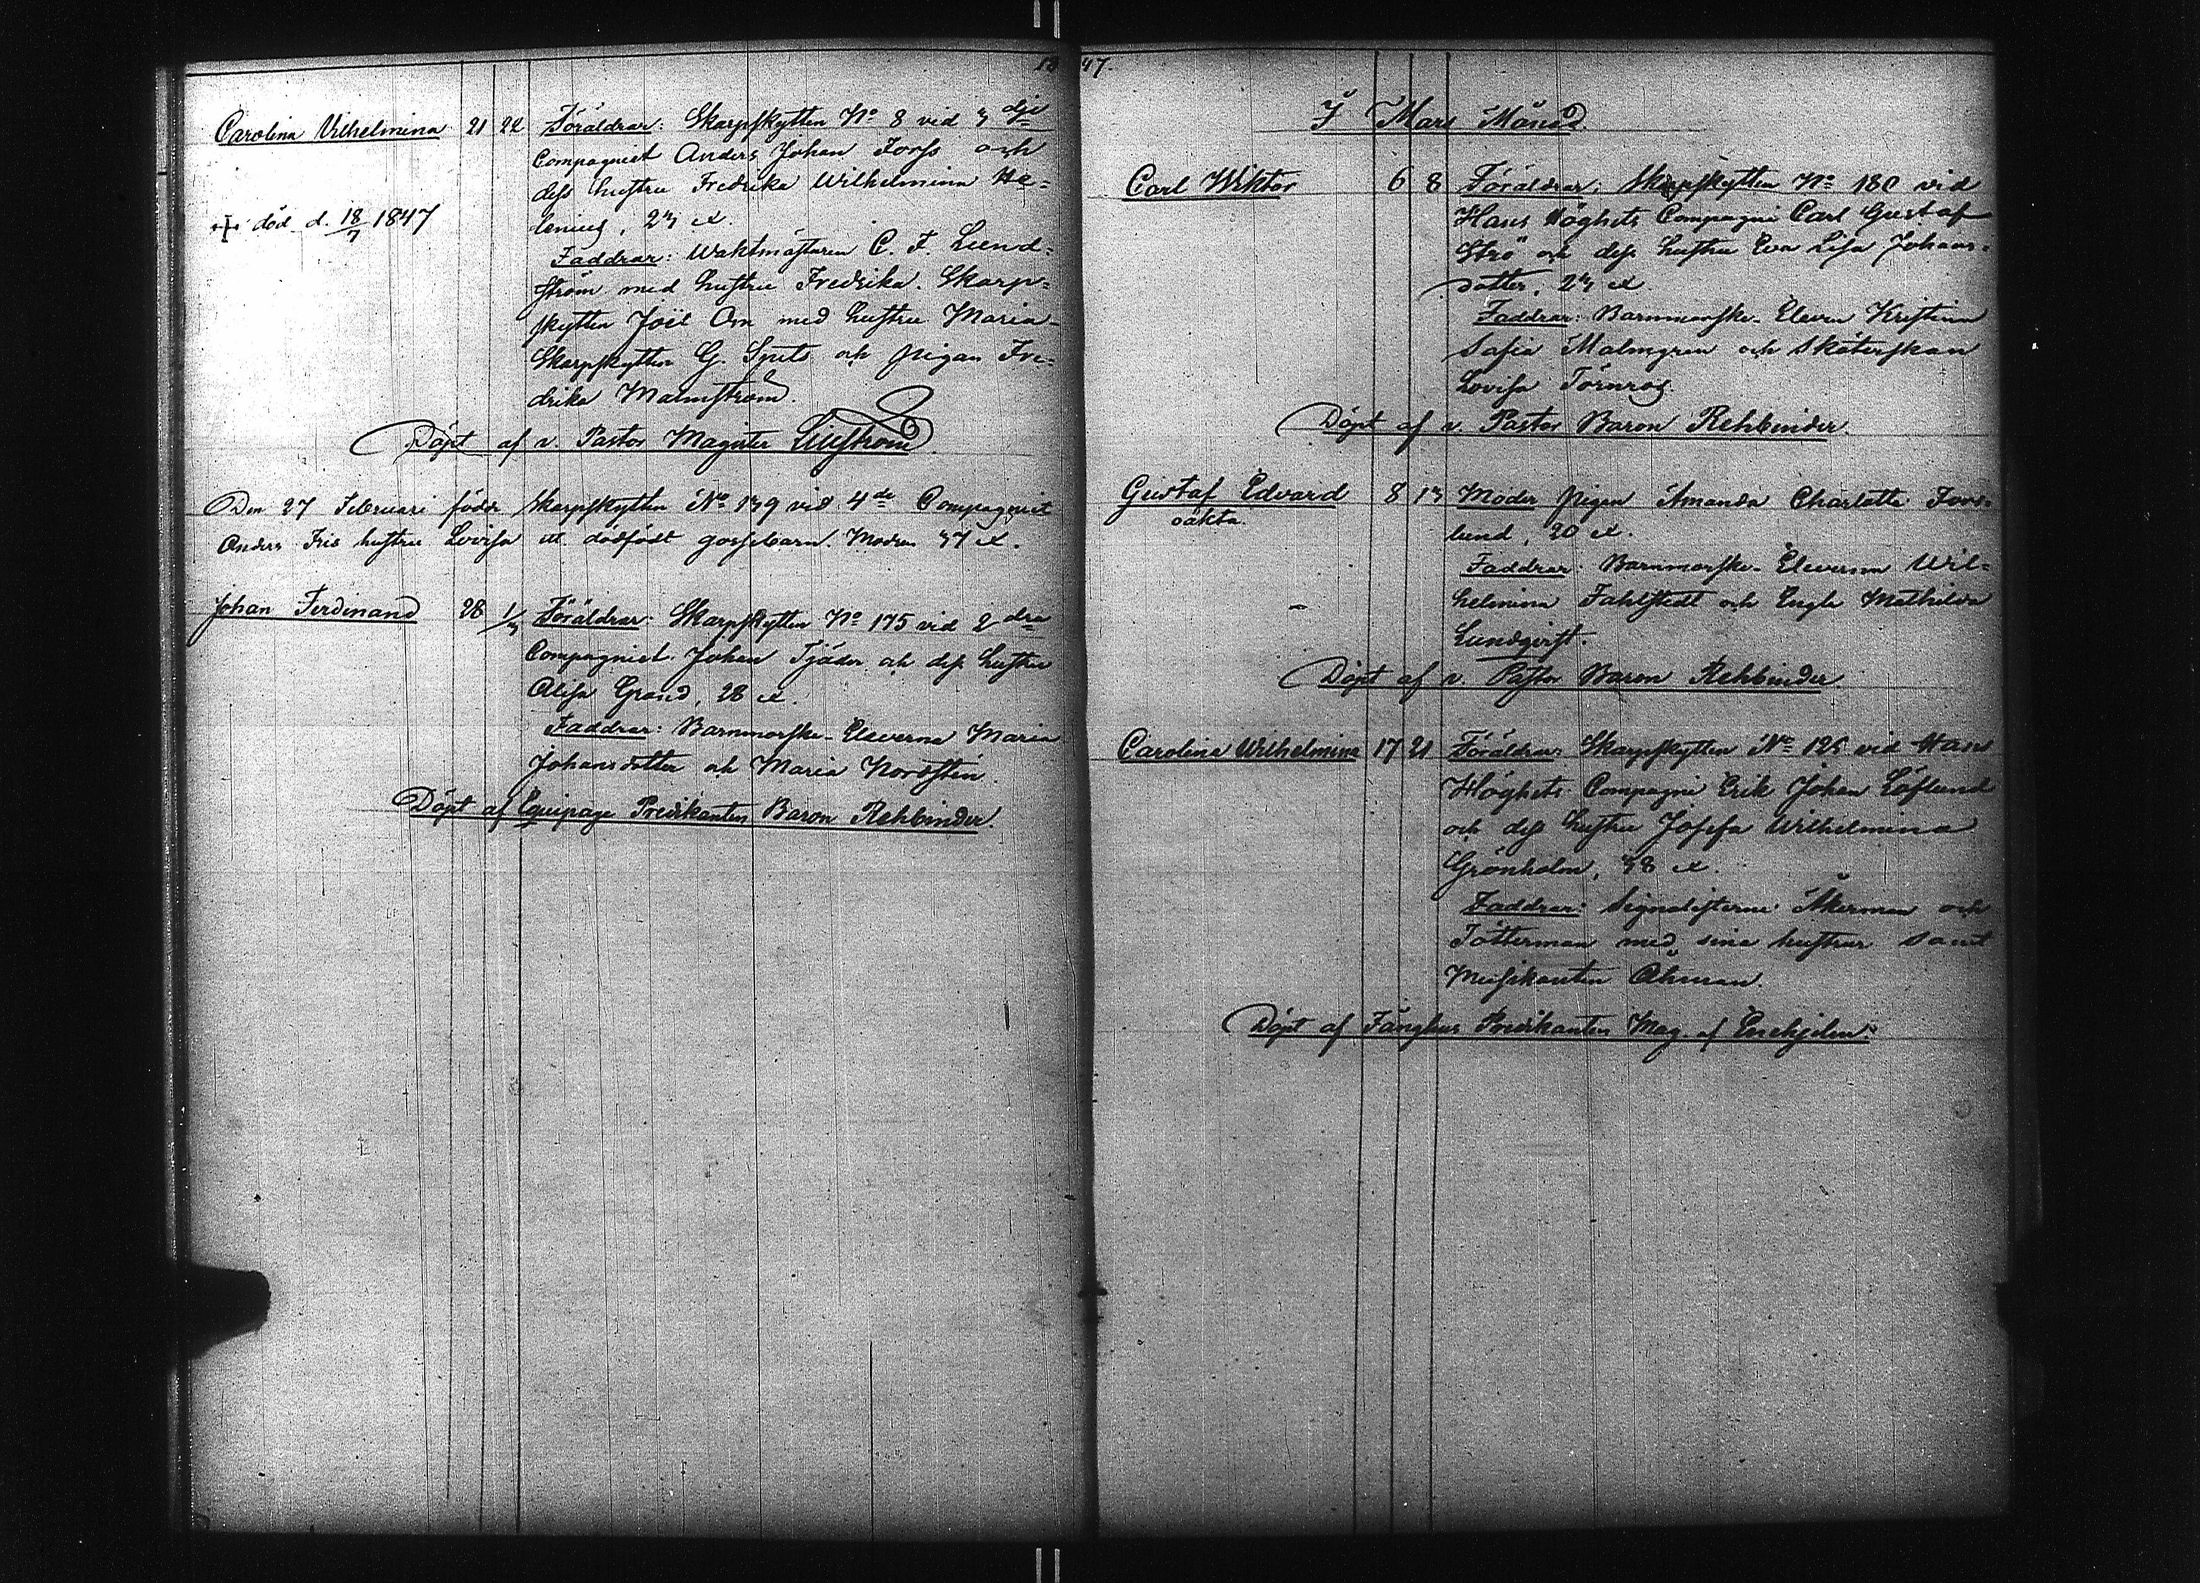 1847.
Carolina Vilhelmina 21 22 Föräldrar: Skarpskytten No 8 vid 3 dje
Compagniet Anders Johan Forss och
dess hustru Fredrika Wilhelmina He=
lenius, 23 
+ död d. 18/7 1847
Faddrar: Waktmästaren C. F. Lund=
ström med hustru Fredrika. Skarp=
skytten Joël Orn med hustru Maria
Skarpskytten G. Spets och pigan Fre=
drika Malmström.
Döpt af v. Pastor Magister
Den 27 Februari födde Skarpskytten No 139 vid 4de Compagniet
Anders Iris hustru Lovisa ett dödfödt gossebarn. Modren 37
Johan Ferdinand 28 1/3 Föräldrar: Skarpskytten No 175 vid 2 dra
Compagniet Johan Tjäder och dess hustru
Alisa Grand, 28
Faddrar: Barnmorske-Eleverna Maria
Johansdotter och Maria Nordstén.
Döpt af Equipage Predikanten Baron Rehbinder.
I Mars Månad.
Carl Wiktor 6 8 Föräldrar: Skarpskytten No 180 vid
Hans Höghets Compagni Carl Gustaf
Strö och dess hustru Eva Lisa Johans=
dotter, 23
Faddrar: Barnmorske-Eleven Kristina
Sofia Malmgren och Sköterskan
Lovisa Törnros.
Döpt af v. Pastor Baron Rehbinder.
Gustaf Edvard 8 13 Moder pigan Amanda Charlotta Fors=
oäkta. lund, 20
Faddrar: Barnmorske-Eleverna Wil=
helmina Fahlstedt och Engla Mathilda
Lundqvist.
Döpt af v. Pastor Baron Rehbinder.
Carolina Wilhelmina 17 21 Föräldrar: Skarpskytten No 125 vid Hans
Höghets Compagni Erik Johan Löflund
och dess hustru Josefa Wilhelmina
Grönholm, 38
Faddrar: Signalisterne Åkerman och
Totterman med sina hustrur samt
Musikanten Öhman.
Döpt af Fånghus Predikanten Mag. af Enehjelm.